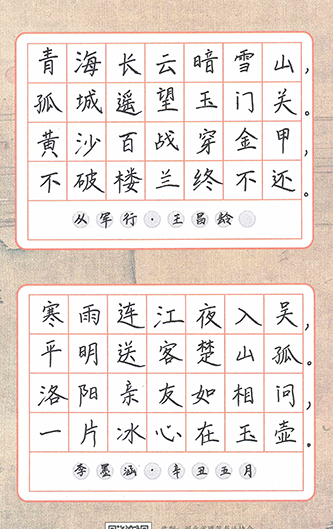 青海长云暗雪山，
孤城遥望玉门关。
黄沙百战穿金甲，
不破楼兰终不还。
从军行·王昌龄
寒雨连江夜入吴，
平明送客楚山孤。
洛阳亲友如相问，
一片冰心在玉壶。
李墨涵·辛丑五月